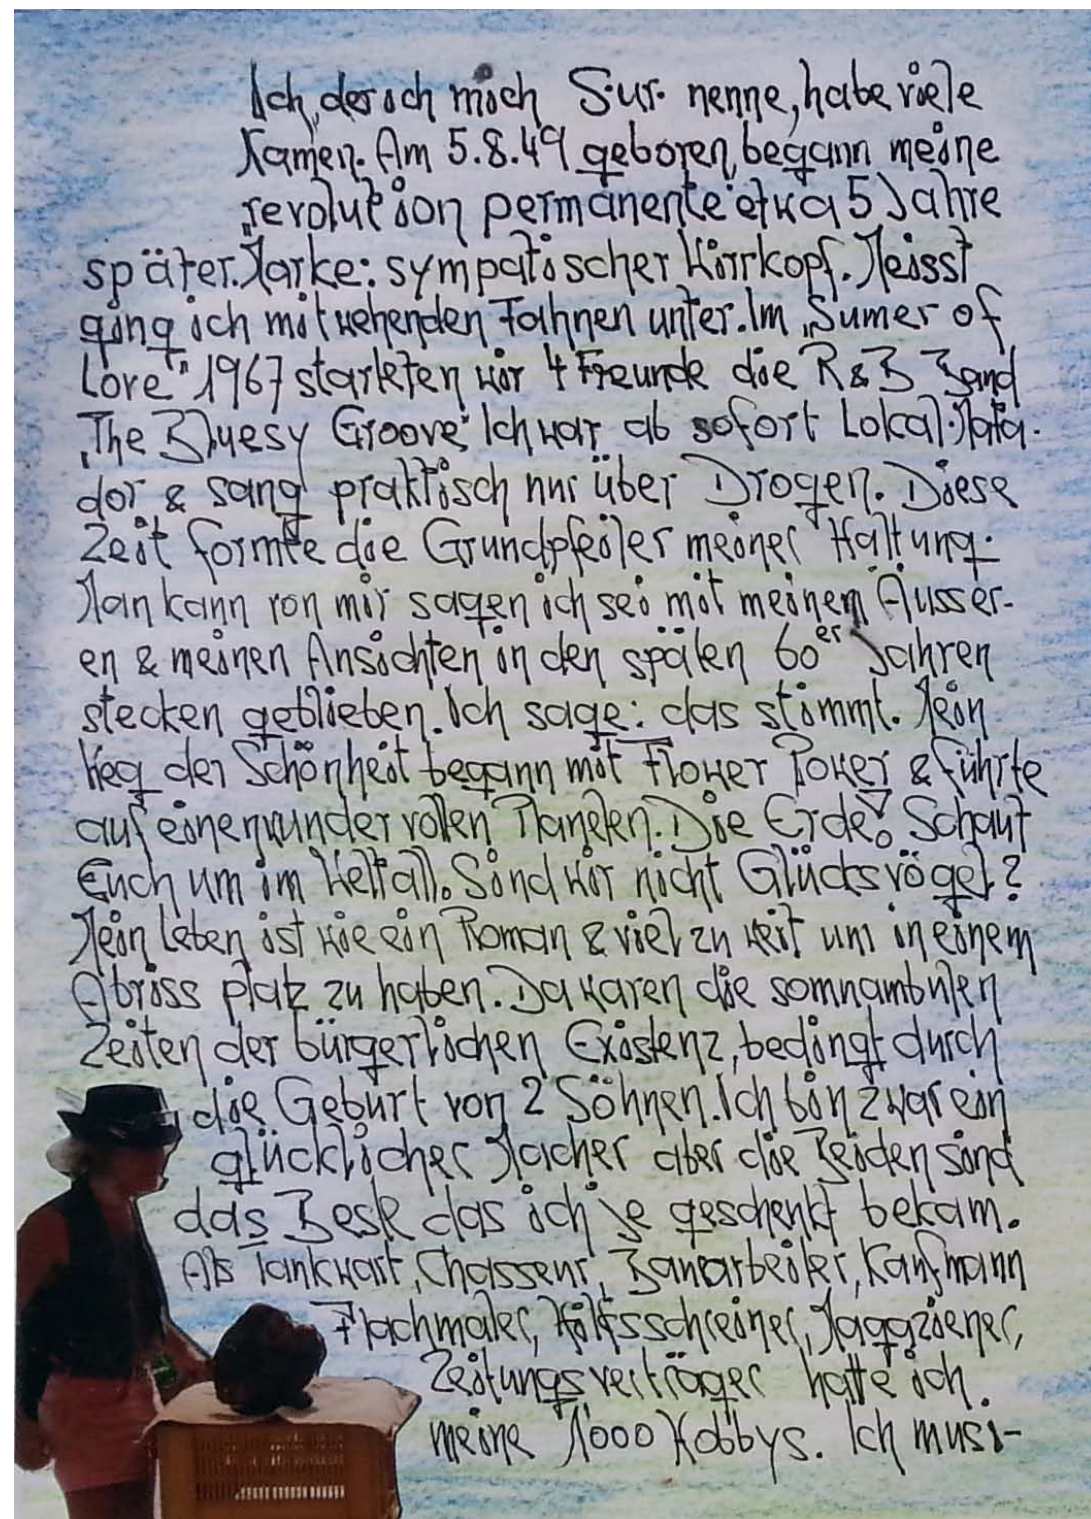 Ich, der ich mich S.ur. nenne, habe viele
Namen. Am 5.8.49 geboren, begann meine
„revolution permanente" etwa 5 Jahre
später. Marke: sympatischer Wirrkopf. Meisst
ging ich mit wehenden Fahnen unter. Im „Sumer of
Love" 1967 starteten wir 4 Freunde die R & B Band
„The Bluesy Groove". Ich war ab sofort Lokal-Mata-
dor & sang praktisch nur über Drogen. Diese
Zeit formte die Grundpfeiler meiner Haltung.
Man kann von mir sagen ich sei mit meinem Äusser-
en & meinen Ansichten in den späten 60er Jahren
stecken geblieben. Ich sage: das stimmt. Mein
Weg der Schönheit begann mit Flower Power & führte
auf einen wundervollen Planeten. Die Erde! Schaut
Euch um im Weltall. Sind wir nicht Glücksvögel?
Mein Leben ist wie ein Roman & viel zu weit um in einem
Abriss platz zu haben. Da waren die somnambulen
Zeiten der bürgerlichen Existenz, bedingt durch
die Geburt von 2 Söhnen. Ich bin zwar ein
glücklicher Macher aber die Beiden sind
das Beste das ich je geschenkt bekam.
Als Tankwart, Chasseur, Bauarbeiter, Kaufmann
Flachmaler, Hilfsschreiner, Magaziener,
Zeitungsverträger hatte ich
meine 1000 Hobbys. Ich musi-